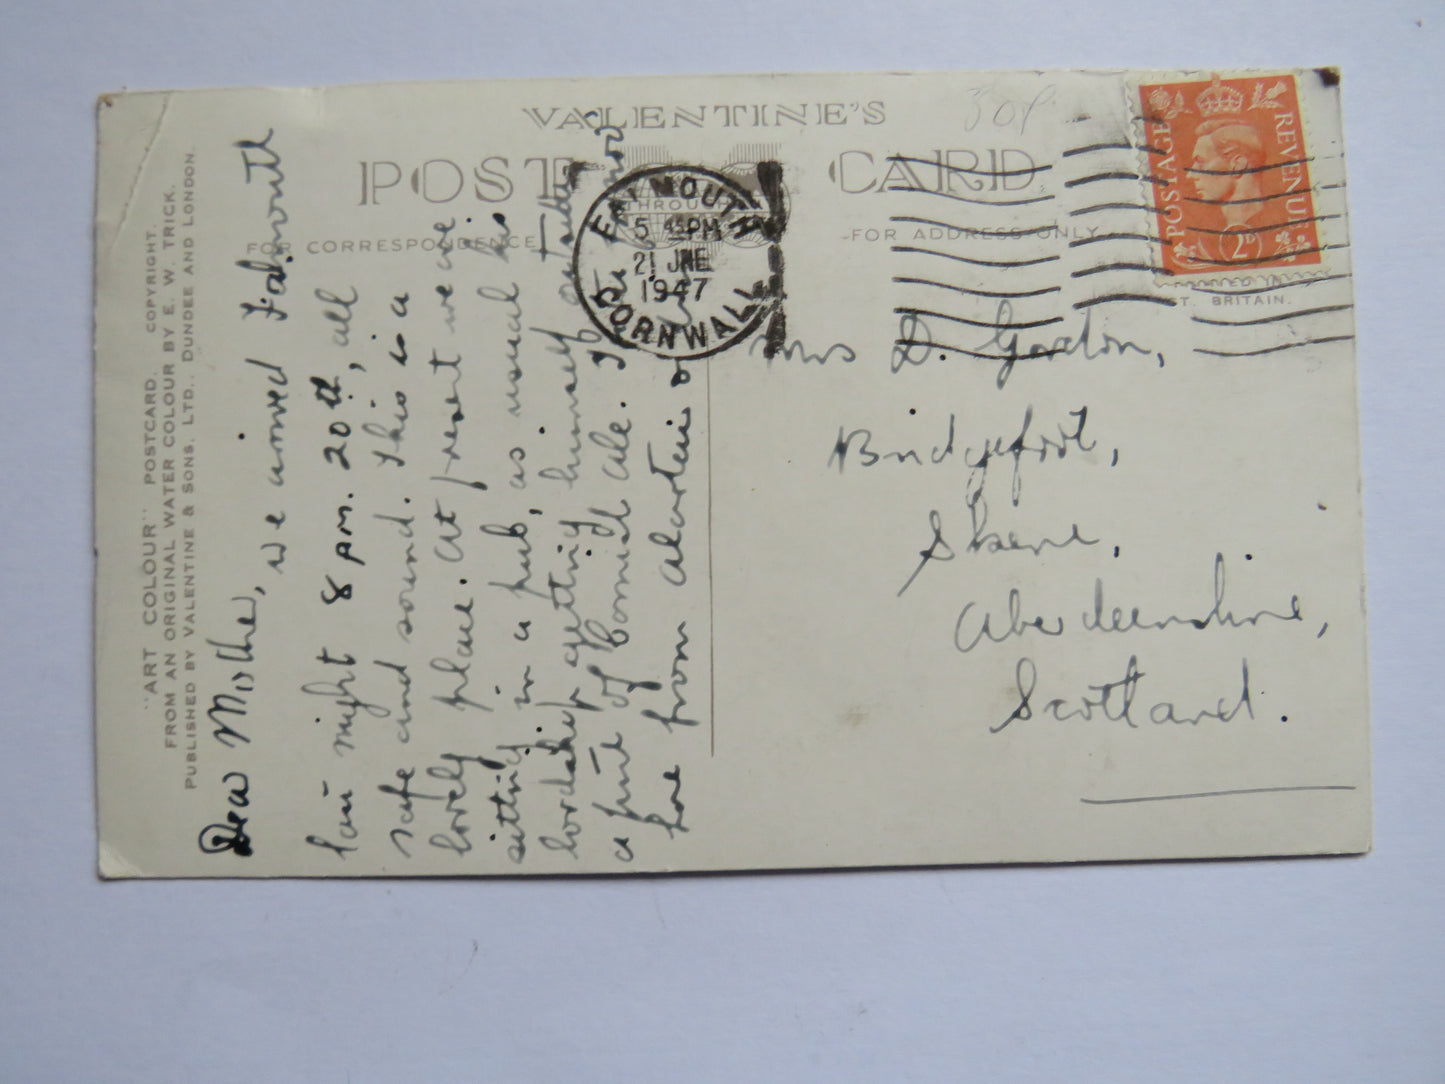 VALENTINE'S
POST CARD
FOR CORRESPONDENCE
-FOR ADDRESS ONLY-
"ART COLOUR" POSTCARD. COPYRIGHT.
FROM AN ORIGINAL WATER COLOUR BY E. W. TRICK.
PUBLISHED BY VALENTINE & SONS, LTD., DUNDEE AND LONDON.
Dear Mother,
we arrived Falmouth
last night 8 pm. 20th, all
safe and sound. This is a
lovely place. At present we are
sitting in a pub, as usual his
lordship getting himself outside
a pint of Cornish ale.
from
FALMOUTH
5 45 PM
21 JNE
1947
CORNWALL
THROUGH
POSTAGE
REVENUE
2D
BRITAIN.
Mrs D. Gordon,
Bridgefoot,
Skene,
Aberdeenshire,
Scotland.